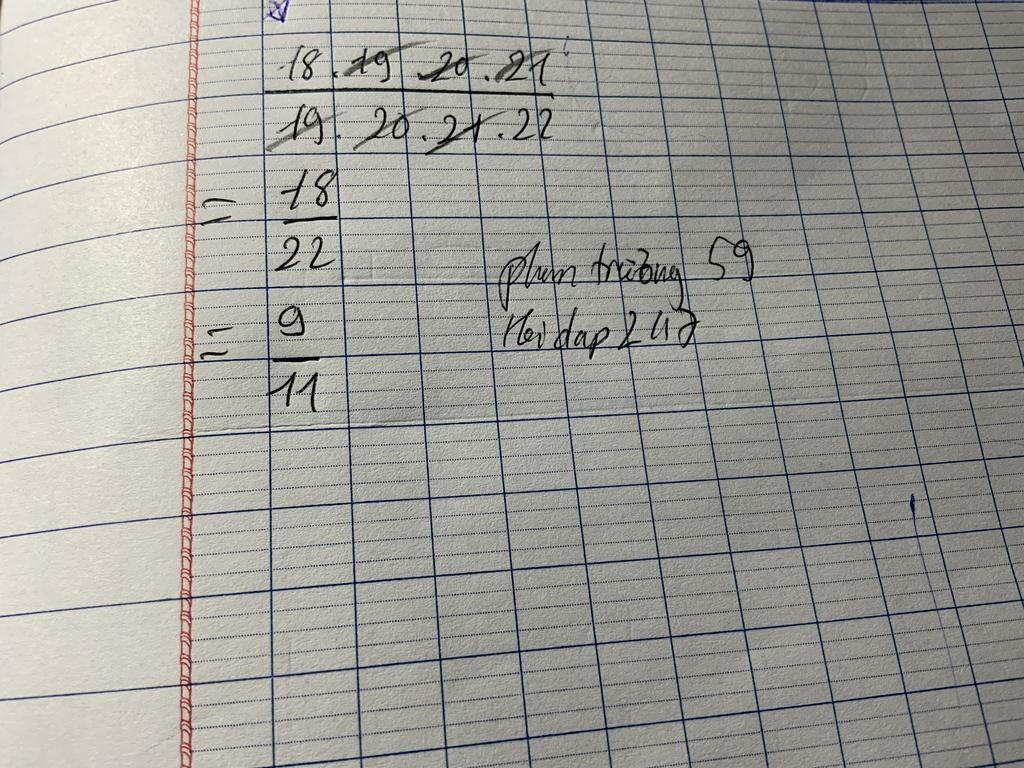 18.19.20.21
19.20.21.22
= 18
22
= 9
11
phum trường 59
Hoi dap 247